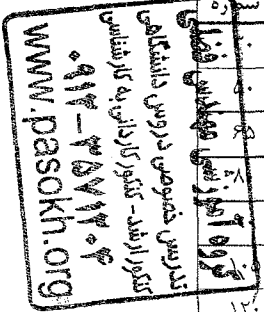 گروه آموزشی مهندس
تدریس خصوصی دروس دانشگاهی
کنکور ارشد - کنکور کاردانی به کارشناسی
۰۹۱۲-۳۵۷۱۳۰۴
www.pasokh.org